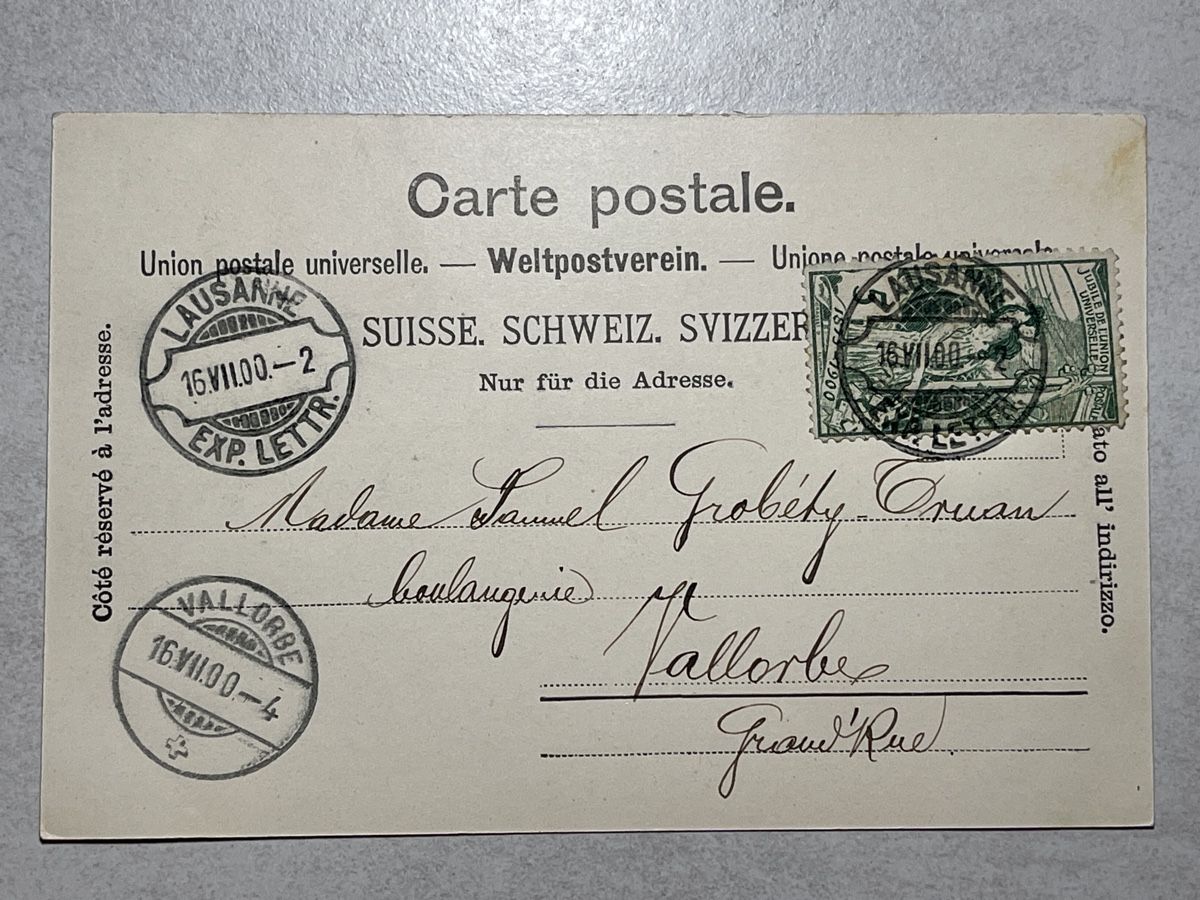 Carte postale.
Union postale universelle. — Weltpostverein. — Unione postale universale
SUISSE. SCHWEIZ. SVIZZER
Nur für die Adresse.
Côté réservé à l'adresse.
ato all' indirizzo.
LAUSANNE
16.VII.00.–2
EXP. LETTR.
JUBILE DE L'UNION
UNIVERSELLE
POSTALE
1875 1900
LAUSANNE
16.VII.00.–2
EXP. LETTR.
Madame Samuel Grobéty-Truan
boulangerie
Vallorbes
Grand'Rue.
VALLORBE
16.VII.00.–4